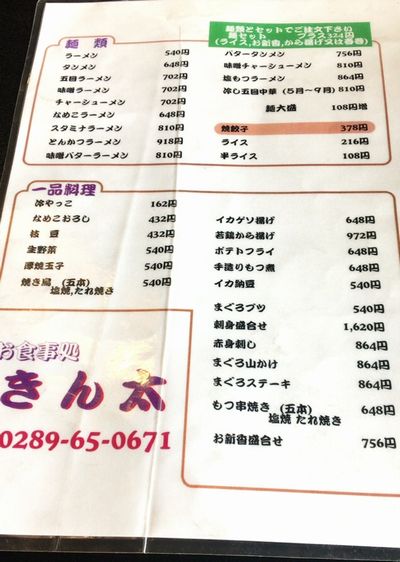 麺類
ラーメン 540円
タンメン 648円
五目ラーメン 702円
味噌ラーメン 702円
チャーシューメン 702円
なめこラーメン 648円
スタミナラーメン 810円
とんかつラーメン 918円
味噌バターラーメン 810円
麺類とセットでご注文下さい
麺セット プラス324円
(ライス,お新香,から揚げ又は春巻)
バタータンメン 756円
味噌チャーシューメン 810円
塩もつラーメン 864円
冷し五目中華 (5月〜9月) 810円
麺大盛 108円増
焼餃子 378円
ライス 216円
半ライス 108円
一品料理
冷やっこ 162円
なめこおろし 432円
枝豆 432円
生野菜 540円
厚焼玉子 540円
焼き鳥 (五本) 540円
塩焼,たれ焼き
イカゲソ揚げ 648円
若鶏から揚げ 972円
ポテトフライ 648円
手造りもつ煮 648円
イカ納豆 540円
まぐろブツ 540円
刺身盛合せ 1,620円
赤身刺し 864円
まぐろ山かけ 864円
まぐろステーキ 864円
もつ串焼き (五本) 648円
塩焼 たれ焼き
お新香盛合せ 756円
お食事処
きん太
0289-65-0671